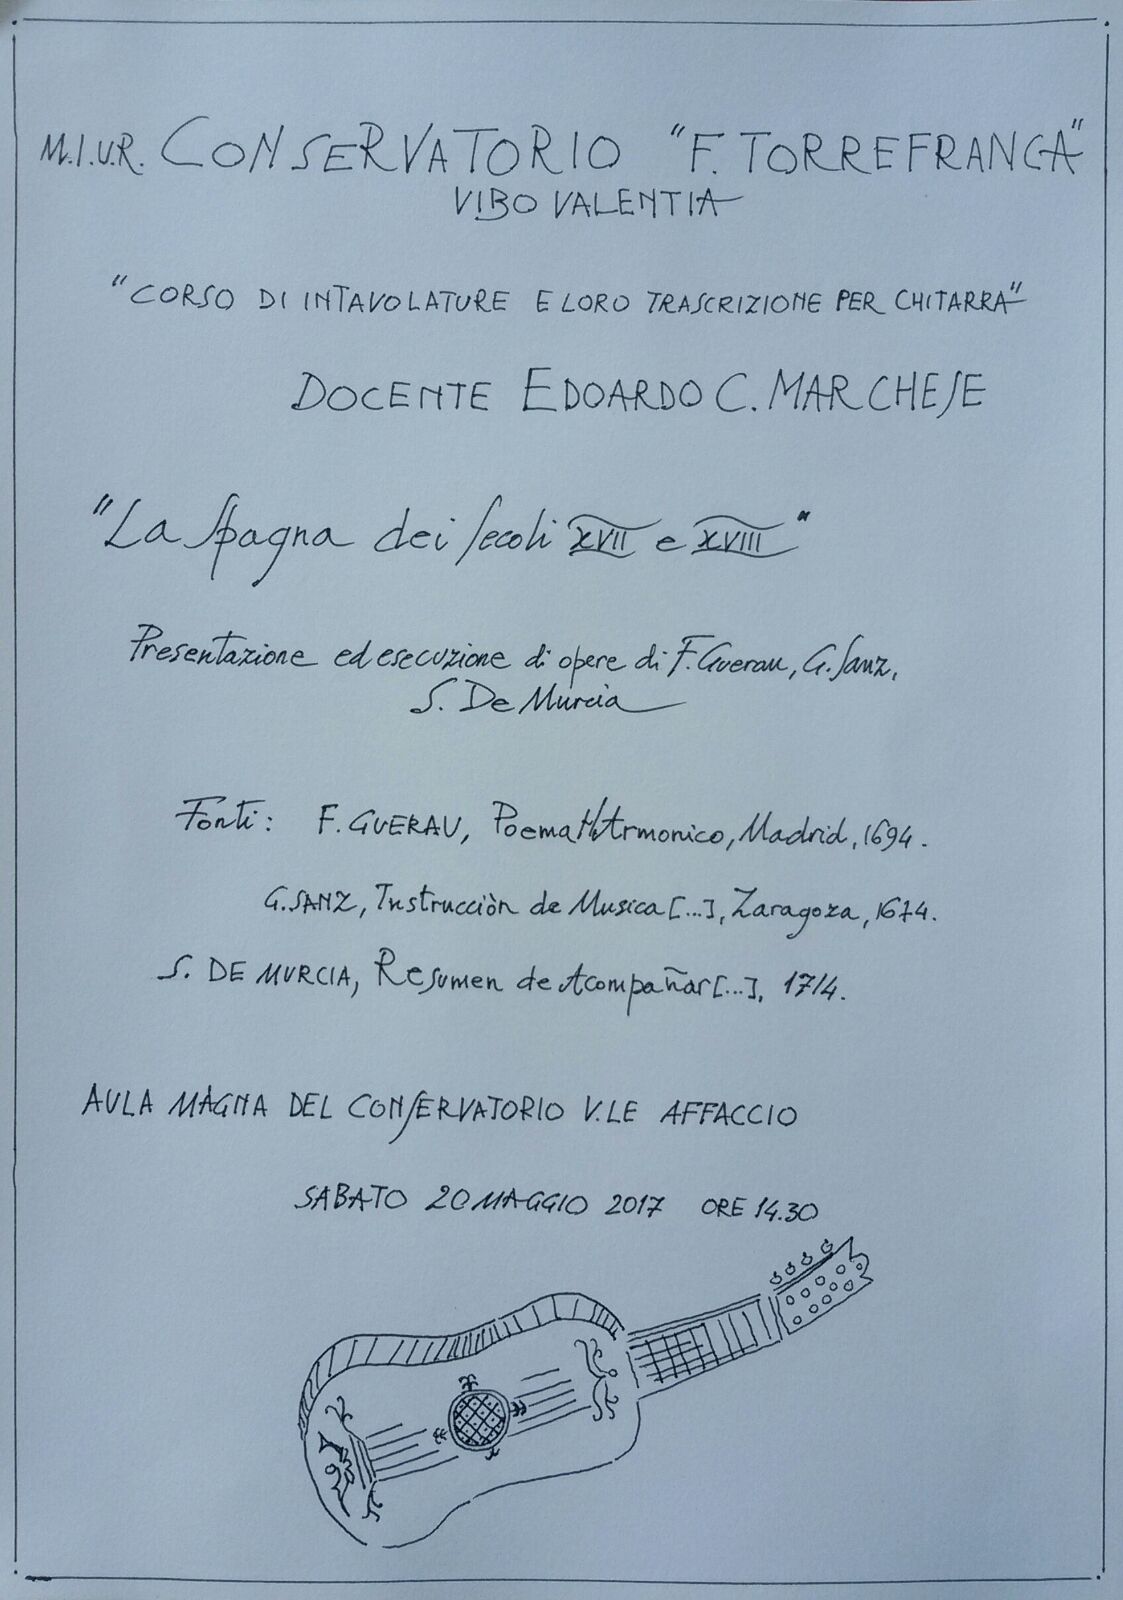 M.I.U.R. CONSERVATORIO "F. TORREFRANCA"
VIBO VALENTIA
"CORSO DI INTAVOLATURE E LORO TRASCRIZIONE PER CHITARRA"
DOCENTE EDOARDO C. MARCHESE
"La Spagna dei secoli XVII e XVIII"
Presentazione ed esecuzione di opere di F. Guerau, G. Sanz,
S. De Murcia
Fonti: F. GUERAU, Poema Harmonico, Madrid, 1694.
G. SANZ, Instrucciòn de Musica [...], Zaragoza, 1674.
S. DE MURCIA, Resumen de Acompañar [...], 1714.
AULA MAGNA DEL CONSERVATORIO V.LE AFFACCIO
SABATO 20 MAGGIO 2017 ORE 14.30